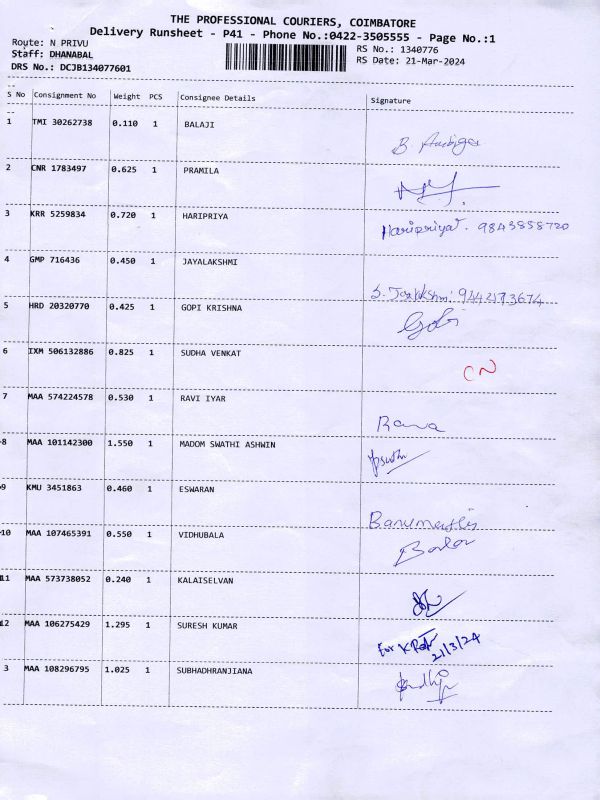 THE PROFESSIONAL COURIERS, COIMBATORE
Delivery Runsheet - P41 - Phone No.:0422-3505555 - Page No.:1
Route: N PRIVU RS No.: 1340776
Staff: DHANABAL RS Date: 21-Mar-2024
DRS No.: DCJB134077601
S No Consignment No Weight PCS Consignee Details Signature
1 TMI 30262738 0.110 1 BALAJI
B.
2 CNR 1783497 0.625 1 PRAMILA
3 KRR 5259834 0.720 1 HARIPRIYA
Haripriya. 9843858720
4 GMP 716436 0.450 1 JAYALAKSHMI
5 HRD 20320770 0.425 1 GOPI KRISHNA
Gobi
6 IXM 506132886 0.825 1 SUDHA VENKAT
CN
7 MAA 574224578 0.530 1 RAVI IYAR
Rava
8 MAA 101142300 1.550 1 MADOM SWATHI ASHWIN
9 KMU 3451863 0.460 1 ESWARAN
10 MAA 107465391 0.550 1 VIDHUBALA
11 MAA 573738052 0.240 1 KALAISELVAN
12 MAA 106275429 1.295 1 SURESH KUMAR
for 21/3/24
3 MAA 108296795 1.025 1 SUBHADHRANJIANA